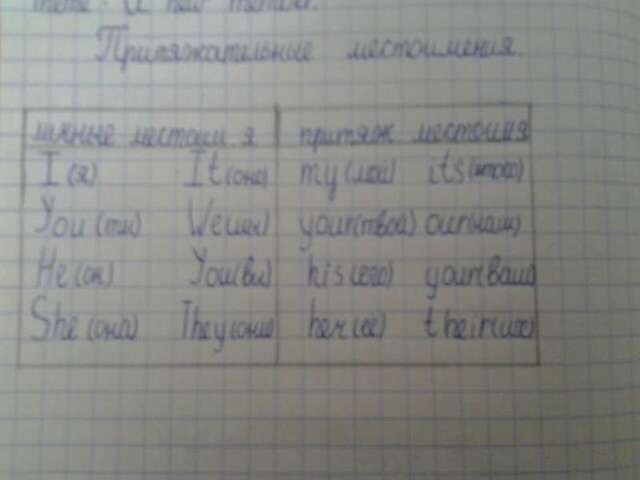 Притяжательные местоимения.
личные местоим я притяж местоимя
I (я) It (оно) my (мой) its (этого)
You (ты) We (мы) your (твой) our (наш)
He (он) You (вы) his (его) your (ваш)
She (она) They (они) her (её) their (их)